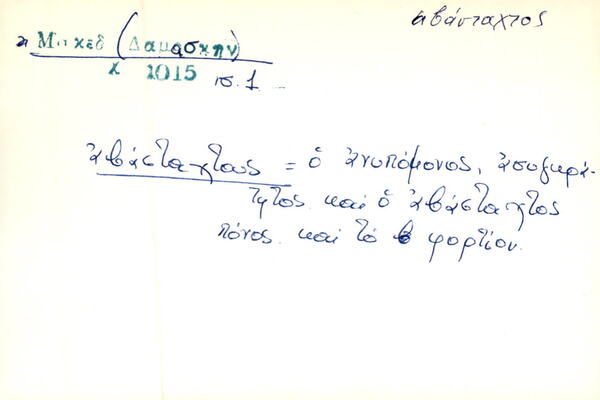 ἀβάσταχτος
Μακεδ (Δαμασκην)
χ 1015 σ. 1
ἀβάσταχτους = ὁ ἀνυπόμονος, ἀσυγκρά-
τητος καὶ ὁ ἀβάσταχτος
πόνος καὶ τὸ φορτίον.